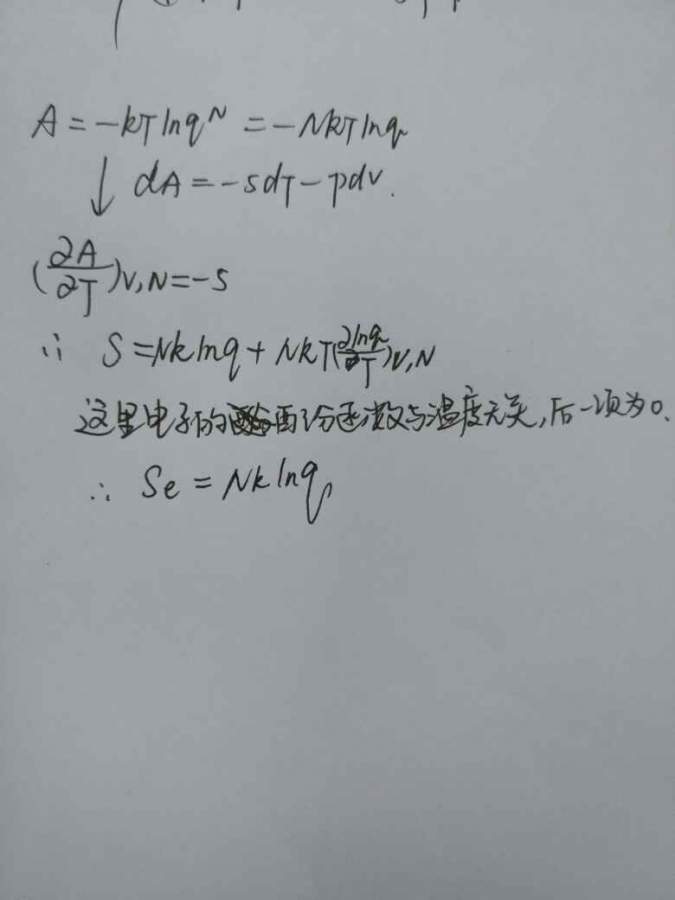 A = -kT ln q^N = -NkT ln q
↓ dA = -SdT - pdV.
(∂A/∂T)V,N = -S
∵ S = Nk ln q + NkT(∂ln q/∂T)V,N
这里电子的配分函数与温度无关,后一项为0.
∴ Se = Nk ln q